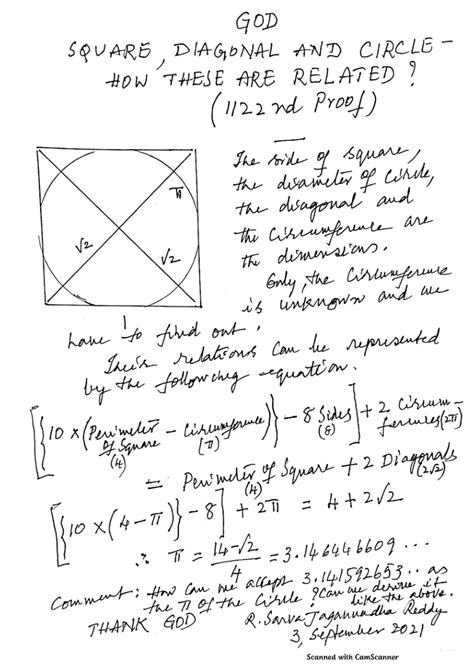 GOD
SQUARE, DIAGONAL AND CIRCLE –
HOW THESE ARE RELATED ?
(1122 nd Proof)
The side of square,
the diameter of circle,
the diagonal and
the circumference are
the dimensions.
Only, the circumference
is unknown and we
π
√2
√2
1
have to find out.
Their relations can be represented
by the following equation.
[{10 × (Perimeter of Square (4) – Circumference (π))} – 8 Sides (8)] + 2 Circumferences (2π)
= Perimeter of Square (4) + 2 Diagonals (2√2)
[{10 × (4 – π)} – 8] + 2π = 4 + 2√2
∴ π = 14 – √2 / 4 = 3.146446609 ...
Comment: How can we accept 3.141592653.. as
the π of the circle ? Can we derive it
like the above.
THANK GOD
R. Sarva Jagannadha Reddy
3, September 2021
Scanned with CamScanner